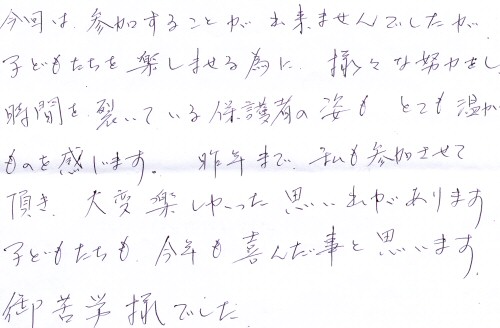 今回は、参加することが出来ませんでしたが、
子どもたちを楽しませる為に、様々な努力をし、
時間を裂いている保護者の姿も とても温か
ものを感じます。 昨年まで、私も参加させて
頂き、大変楽しかった思い出があります。
子どもたちも、今年も喜んだ事と思います。
御苦労様でした。